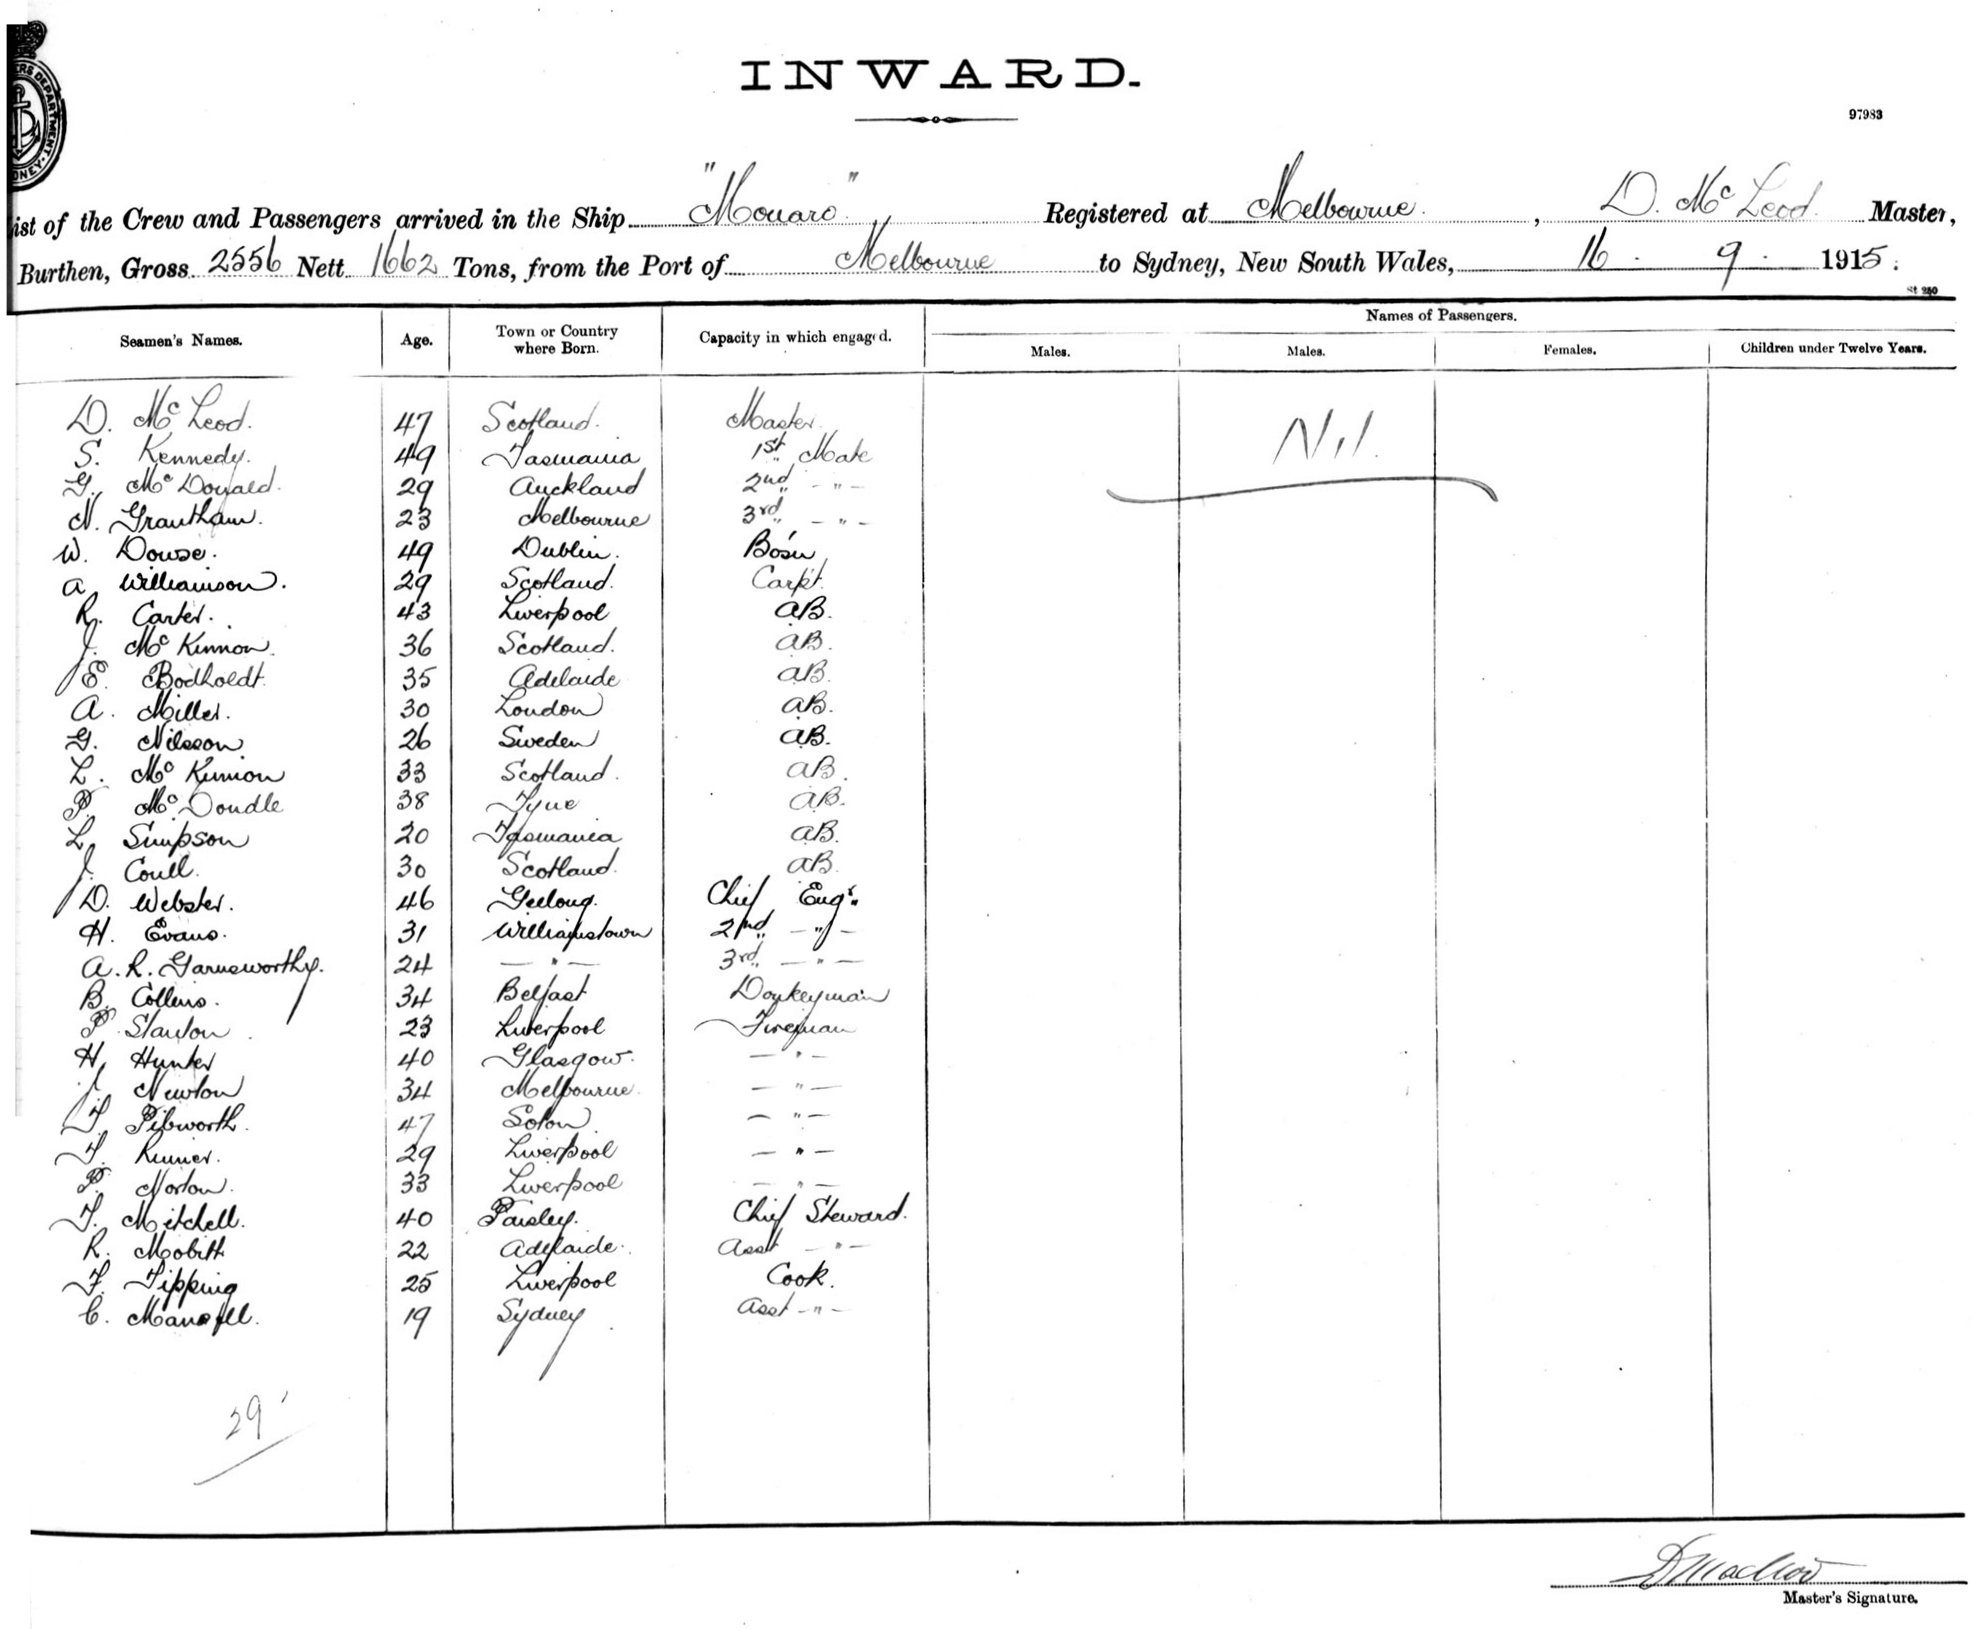 INWARD.
97983
ERS DEPARTMENT. SYDNEY
ist of the Crew and Passengers arrived in the Ship "Monaro" Registered at Melbourne, D. McLeod Master,
Burthen, Gross 2556 Nett 1662 Tons, from the Port of Melbourne to Sydney, New South Wales, 16 . 9 . 1915.
St 250
Seamen's Names. Age. Town or Country where Born. Capacity in which engaged. Names of Passengers.
Males. Males. Females. Children under Twelve Years.
D. McLeod. 47 Scotland. Master. Nil.
S. Kennedy. 49 Tasmania 1st Mate
G. McDonald. 29 Auckland 2nd - " -
N. Grantham. 23 Melbourne 3rd - " -
W. Dowse. 49 Dublin. Bo'sn
A. Williamson. 29 Scotland. Carpt.
R. Carter. 43 Liverpool AB.
J. McKinnon. 36 Scotland. AB.
E. Bodholdt. 35 Adelaide AB.
A. Miller. 30 London AB.
G. Nilsson 26 Sweden AB.
L. McKinnon 33 Scotland. AB.
P. McDondle 38 Tyne AB.
L. Simpson 20 Tasmania AB.
J. Coull. 30 Scotland. AB.
D. Webster. 46 Geelong. Chief Engr.
H. Evans. 31 Williamstown 2nd - " -
A. R. Garnsworthy. 24 - " - 3rd - " -
B. Collins. 34 Belfast Donkeyman
P. Stanton 23 Liverpool Fireman
H. Hunter 40 Glasgow. - " -
J. Newton 34 Melbourne. - " -
T. Pibworth. 47 Soton - " -
T. 29 Liverpool - " -
P. Norton. 33 Liverpool - " -
T. Mitchell. 40 Paisley. Chief Steward.
R. Mobitt 22 Adelaide. Asst - " -
F. Tipping 25 Liverpool Cook.
C. Mansfll. 19 Sydney Asst - " -
29
D Macleod
Master's Signature.